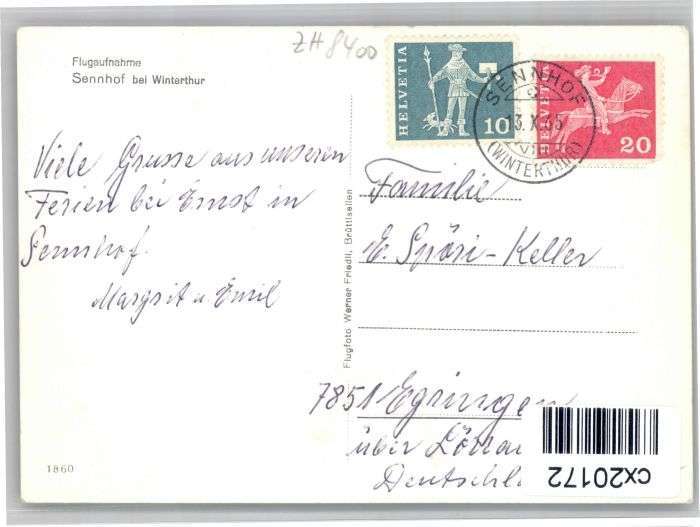 ZH 8400
Flugaufnahme
Sennhof bei Winterthur
HELVETIA
10
HELVETIA
20
SENNHOF
13.X.65
(WINTERTHUR)
Viele Grüsse aus unseren
Ferien bei Ernst in
Sennhof.
Margrit u. Emil
Flugfoto Werner Friedli, Brüttisellen
Familie
E. Spöri-Keller
7851 Egringen
über
Deutschl
1860
cx20172